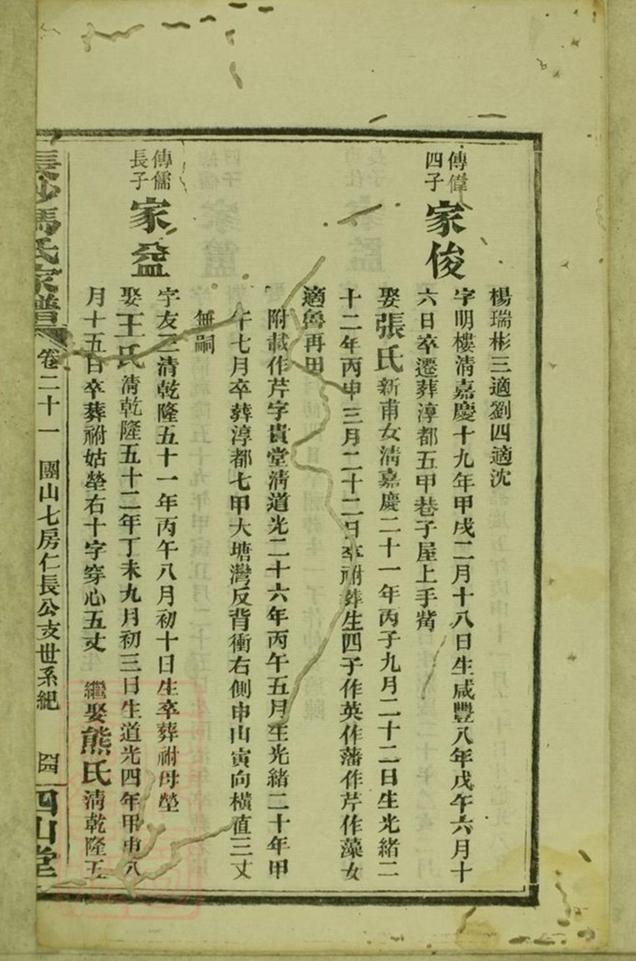 楊瑞彬三適劉四適沈
傳偉四子
家俊
字明樓清嘉慶十九年甲戌二月十八日生咸豐八年戊午六月十
六日卒遷葬淳都五甲巷子屋上手嶺
娶張氏新甫女清嘉慶二十一年丙子九月二十二日生光緒二
十二年丙申三月二十二日卒祔葬生四子作英作藩作芹作藻女
適魯再田
附載作芹字貴堂清道光二十六年丙午五月生光緒二十年甲
午七月卒葬淳都七甲大塘灣反背衝右側申山寅向橫值三丈
無嗣
傳儒長子
家益
字友三清乾隆五十一年丙午八月初十日生卒葬祔母塋
娶王氏清乾隆五十二年丁未九月初三日生道光四年甲申八
月十五日卒葬祔姑塋右十字穿心五丈 繼娶熊氏清乾隆五
長沙馮氏家譜 卷二十一 團山七房仁長公支世系紀 四山堂